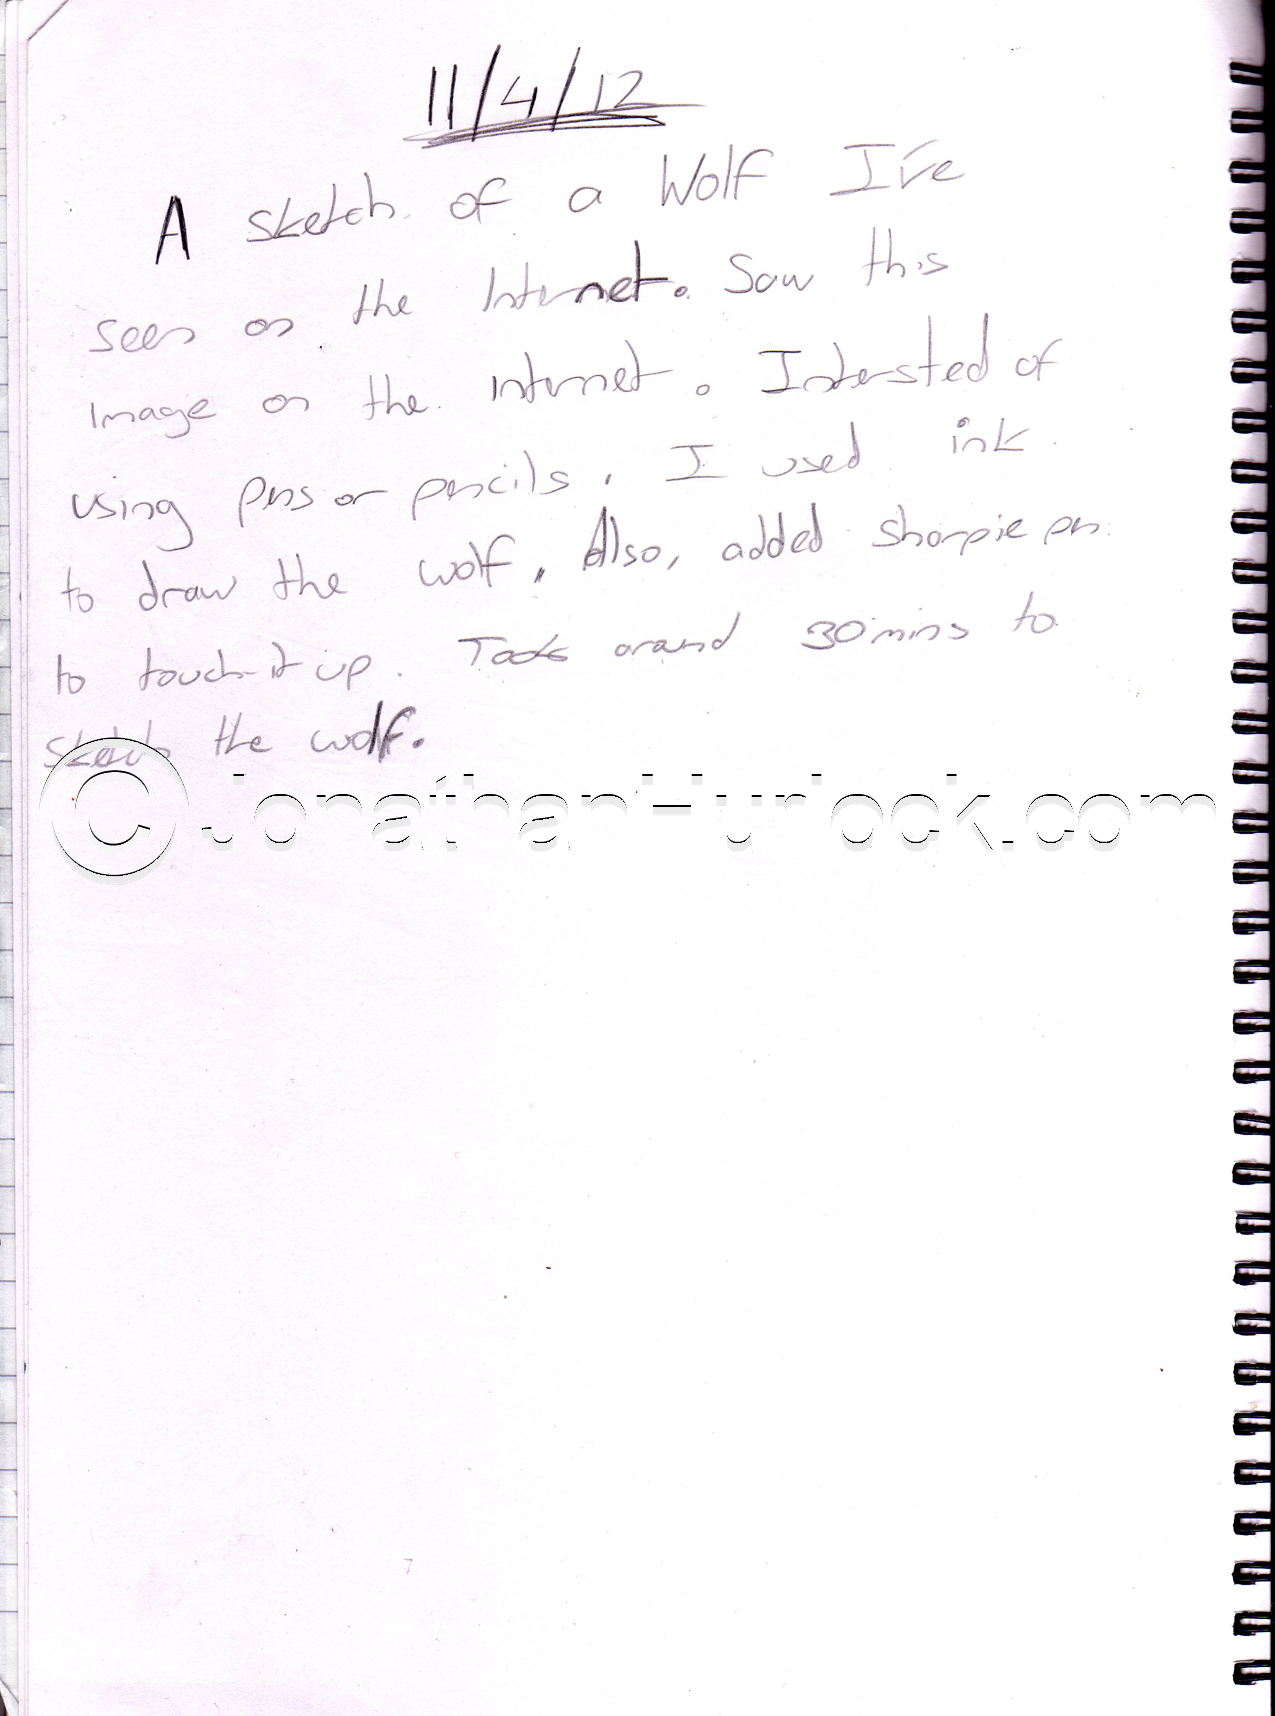 11/4/12
A sketch of a Wolf I've
seen on the Internet. Saw this
image on the internet. Intersted of
using pens or pencils. I used ink
to draw the wolf. Also, added sharpie pen
to touch-it up. Took around 30mins to
sketch the wolf.
© JonathanHurlock.com